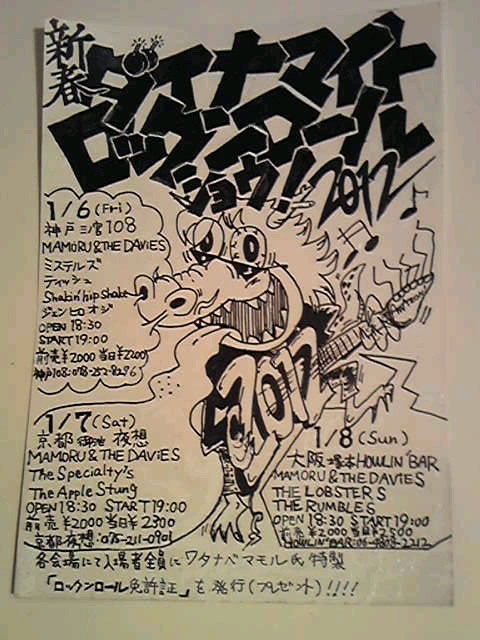 新春
ダイナマイト
ロックンロール
ショウ! 2012
1/6 (Fri)
神戸三宮108
MAMORU & THE DAViES
ミステルズ
ティッシュ
Shakin' hip shake
ジェン ヒロ オジ
OPEN 18:30
START 19:00
前売¥2000 当日¥2200
神戸108:078-252-8296
2012
1/7 (Sat)
京都 御池 夜想
MAMORU & THE DAViES
The Specialty's
The Apple Stung
OPEN 18:30 START 19:00
前売 ¥2000 当日¥2300
京都夜想:075-211-0901
1/8 (Sun)
大阪 塚本 HOWLIN' BAR
MAMORU & THE DAViES
THE LOBSTERS
THE RUMBLES
OPEN 18:30 START 19:00
前売¥2000 当日¥2500
HOWLIN' BAR:06-4808-2212
各会場にて入場者全員にワタナベマモル氏特製
「ロックンロール免許証」を発行(プレゼント)!!!!